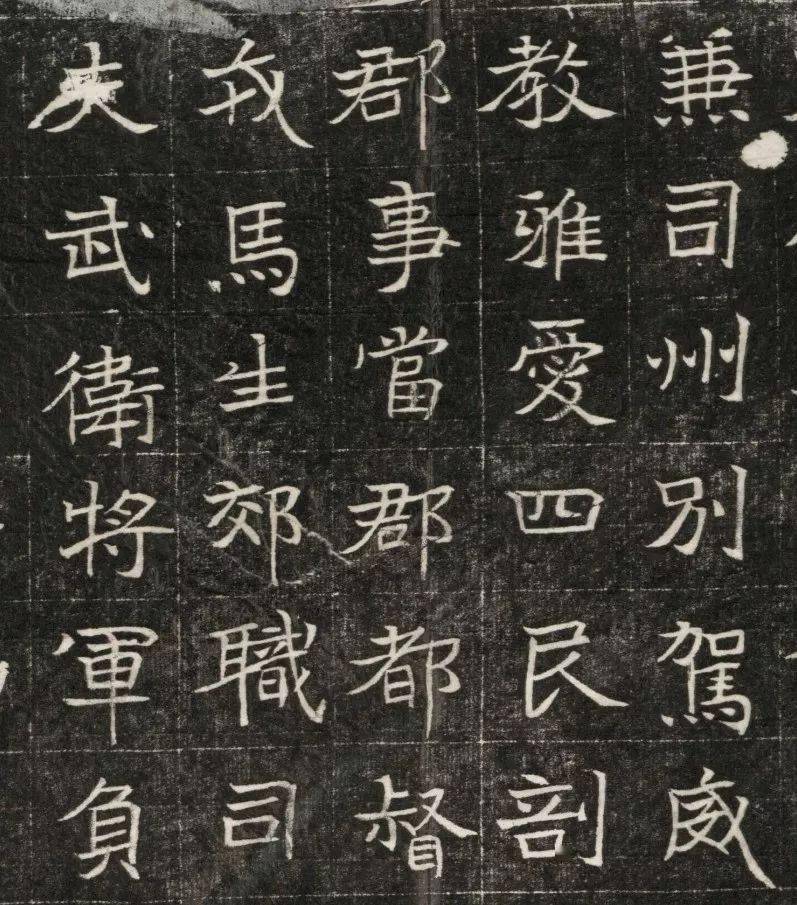 兼司州別駕威
教雅愛四民剖
郡事當郡都督
戎馬生郊職司
夫武衛將軍負